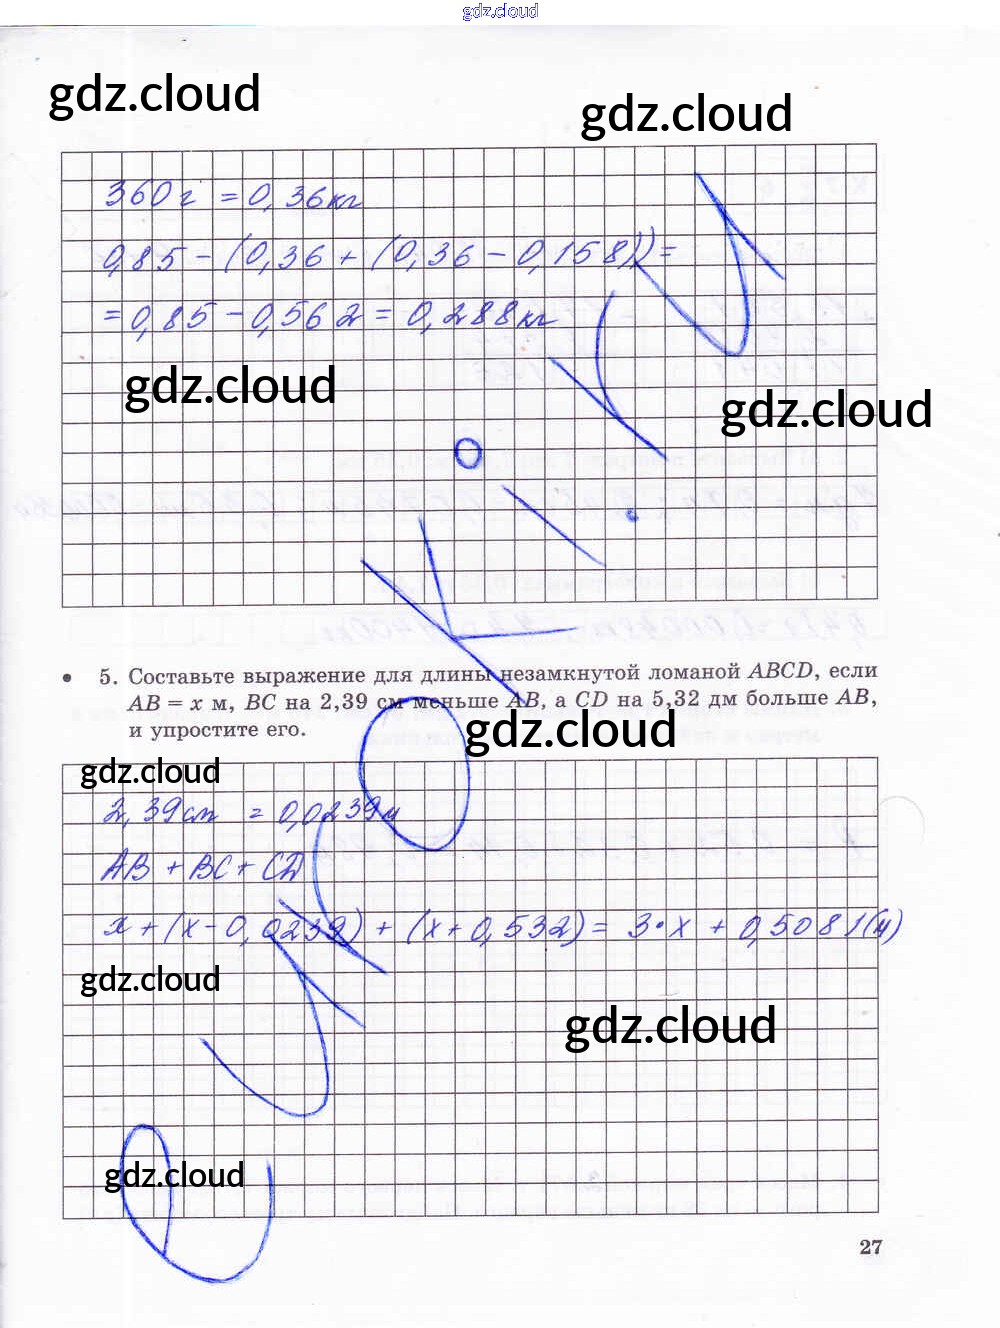 gdz.cloud
gdz.cloud
gdz.cloud
360 г = 0,36 кг
0,85 - (0,36 + (0,36 - 0,158)) =
= 0,85 - 0,562 = 0,288 кг
gdz.cloud
gdz.cloud
5. Составьте выражение для длины незамкнутой ломаной ABCD, если
AB = x м, BC на 2,39 см меньше AB, а CD на 5,32 дм больше AB,
и упростите его.
gdz.cloud
gdz.cloud
2,39 см = 0,0239 м
AB + BC + CD
x + (x - 0,0239) + (x + 0,532) = 3·x + 0,5081 (м)
gdz.cloud
gdz.cloud
gdz.cloud
27